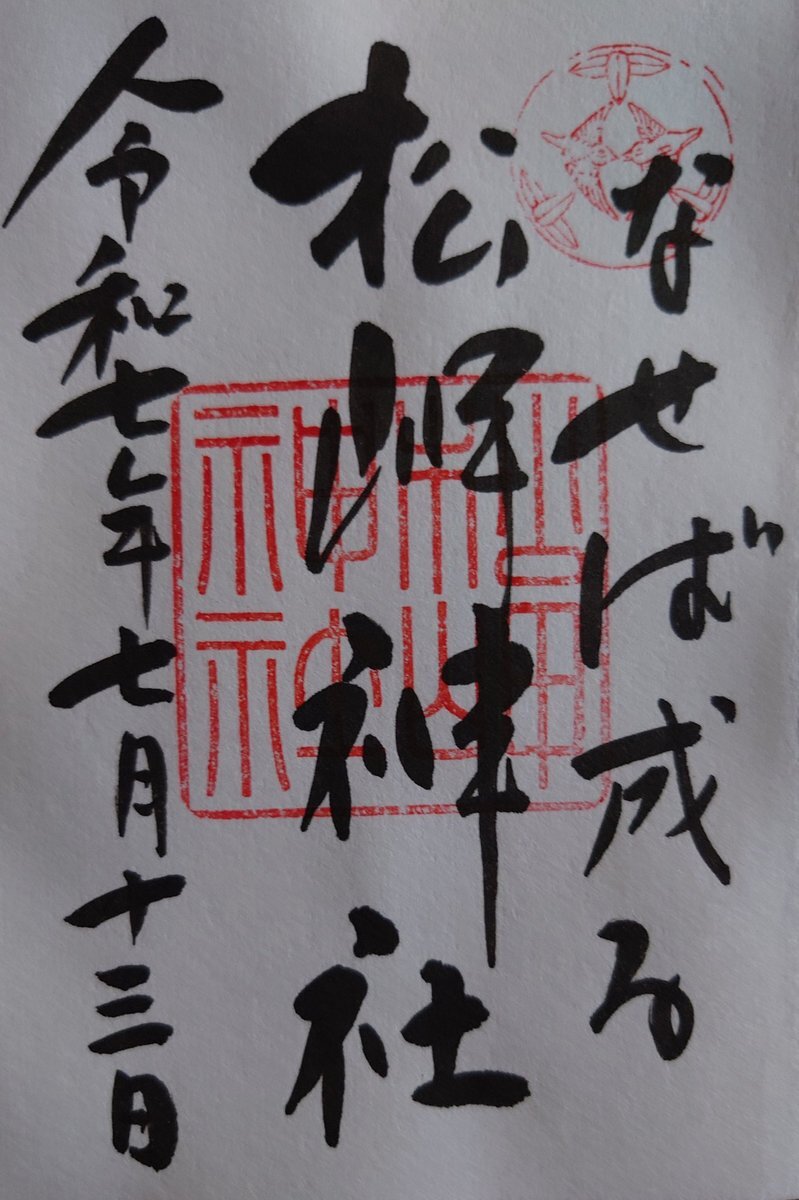 なせば成る
松岬神社
令和七年七月十三日
松岬
神社